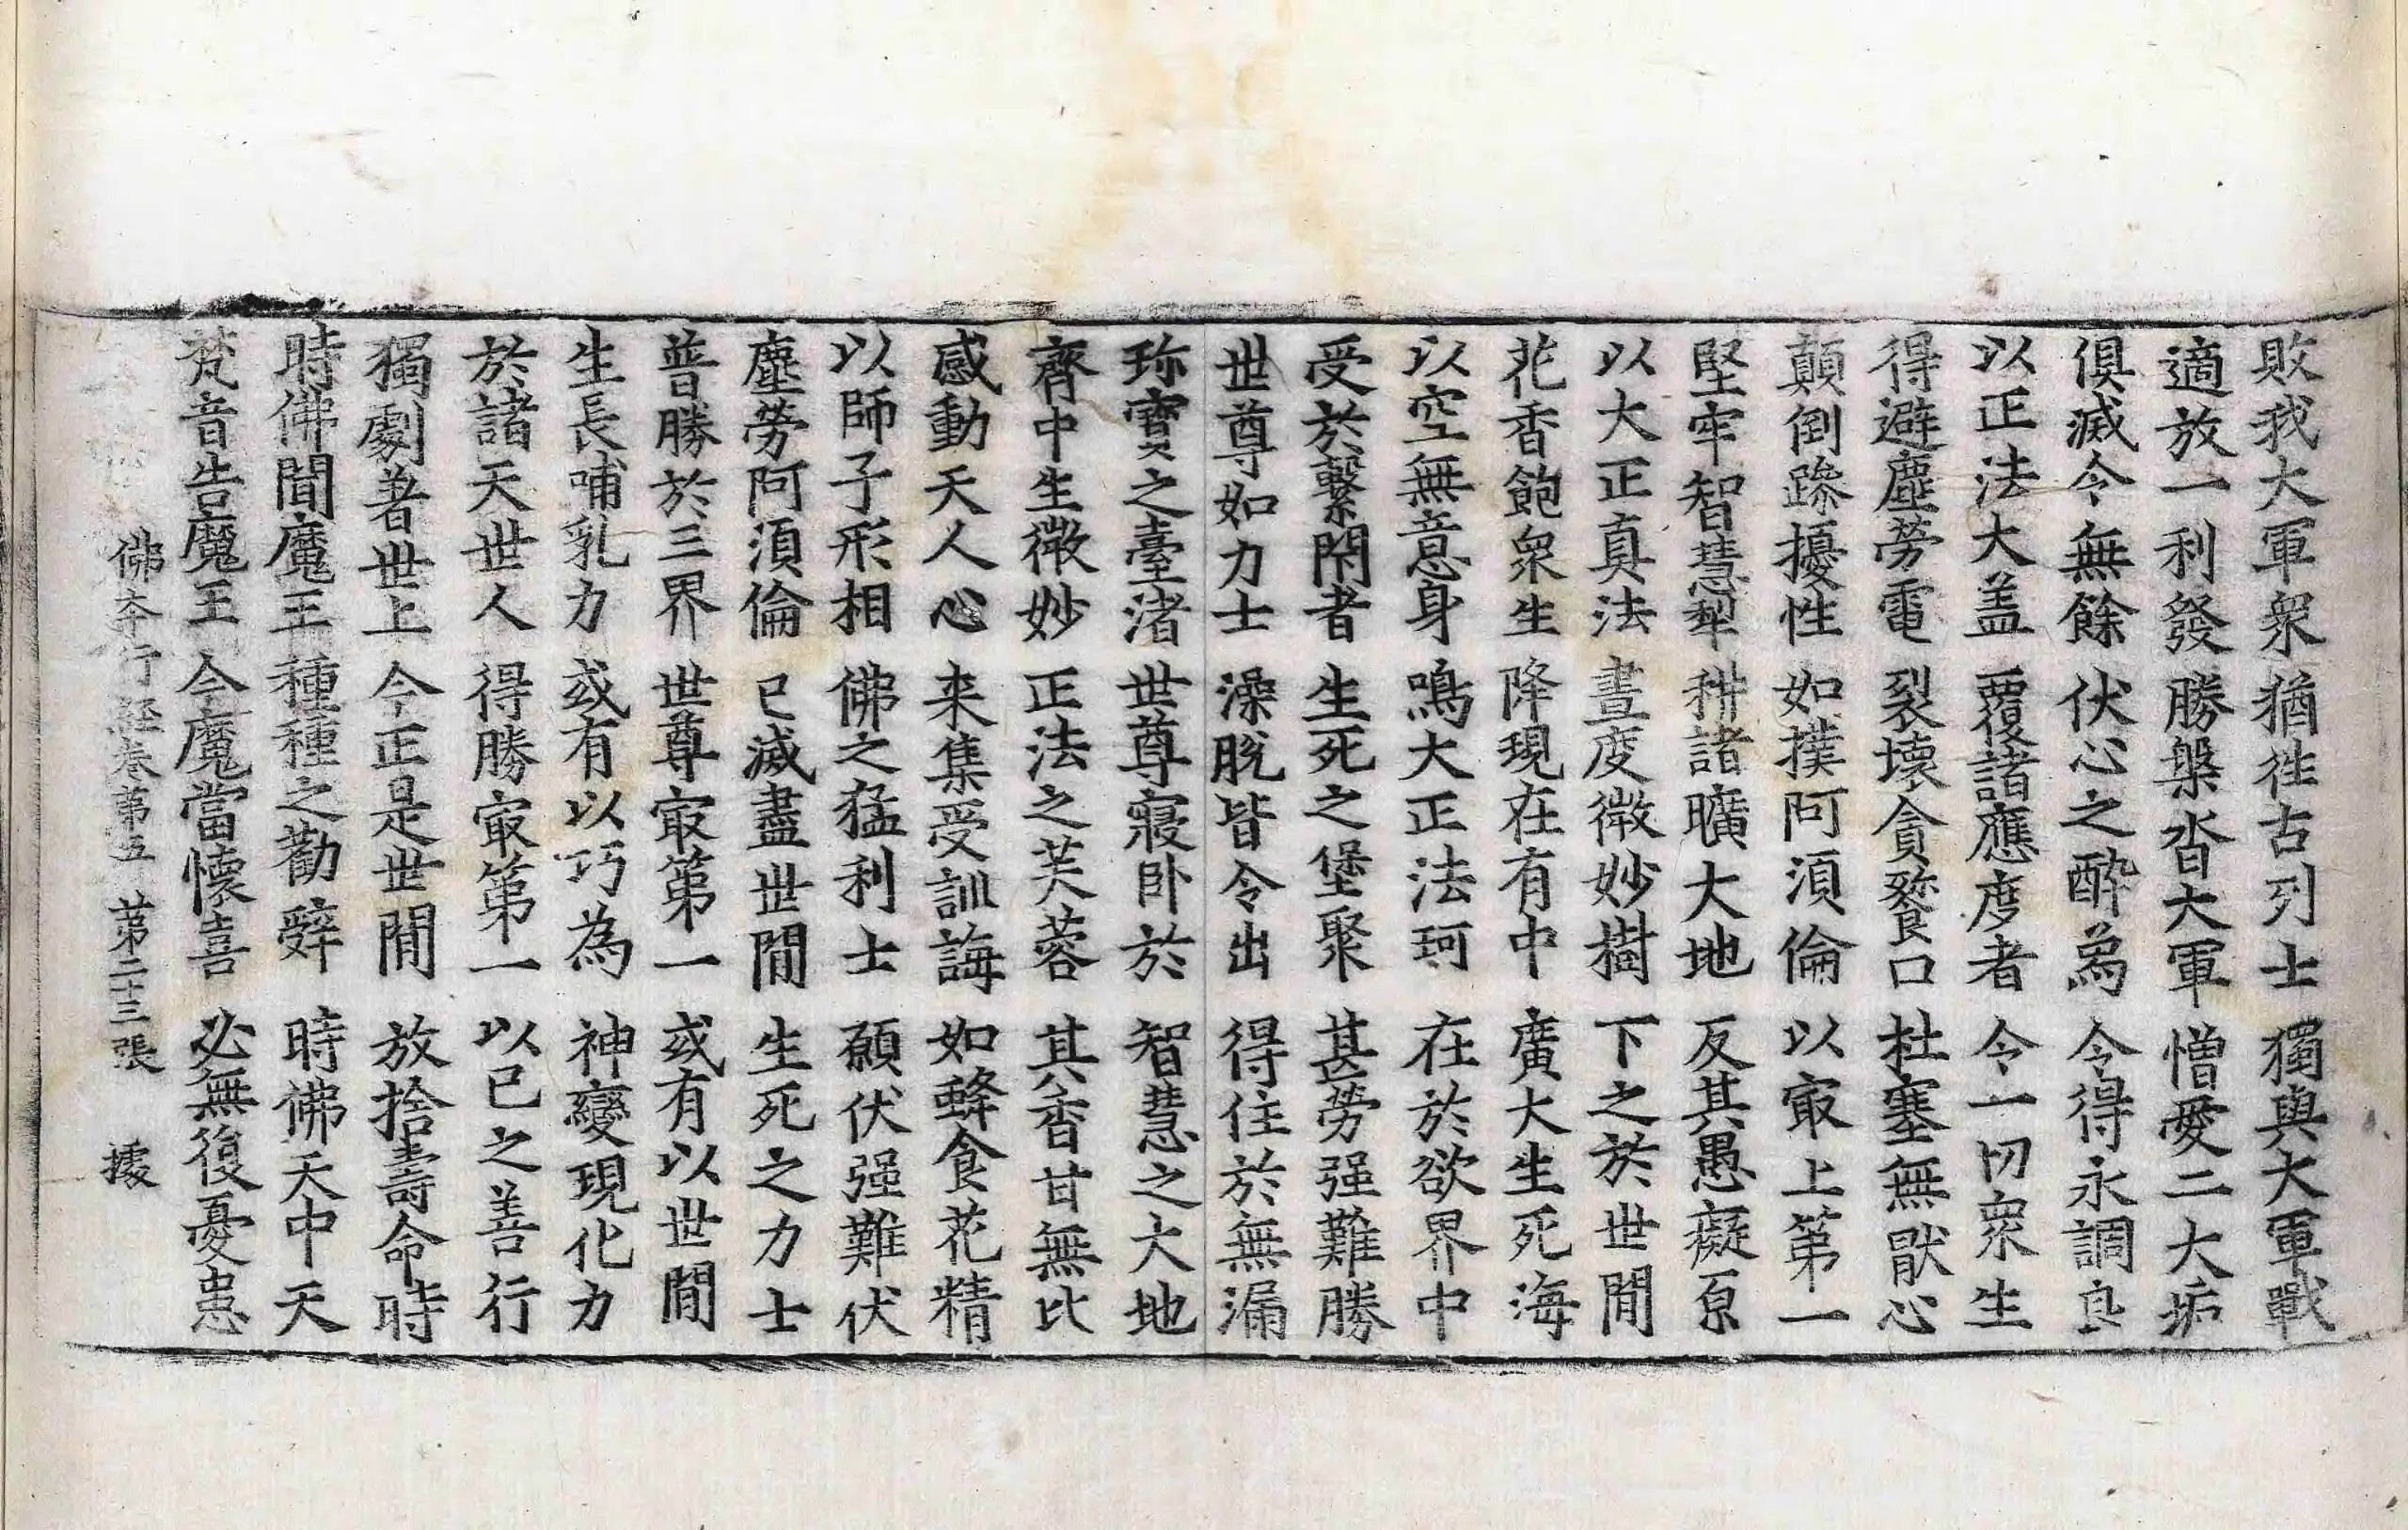 敗我大軍衆 猶徃古列士 獨與大軍戰
適放一利發 勝槃沓大軍 憎愛二大垢
俱滅令無餘 伏心之酔為 令得永調良
以正法大盖 覆諸應度者 令一切衆生
得避塵勞電 裂壞貪餮口 杜塞無猒心
顛倒躁擾性 如撲阿湏倫 以㝡上第一
堅牢智慧犁 耕諸曠大地 反其愚癡原
以大正真法 晝度微妙樹 下之於世間
花香飽衆生 降現在有中 廣大生死海
以空無息身 鳴大正法珂 在於欲界中
受於繫閇者 生死之堡聚 甚勞强難勝
世尊如力士 澡脫皆令出 得住於無漏
珎寶之臺渚 世尊寢卧於 智慧之大地
齊中生微妙 正法之芙蓉 其香甘無比
感動天人心 来集受訓誨 如蜂食花精
以師子形相 佛之猛利士 願伏强難伏
塵勞阿湏倫 已滅盡世間 生死之力士
普勝於三界 世尊㝡第一 或有以世間
生長哺乳力 或有以巧為 神變現化力
於諸天世人 得勝㝡第一 以已之善行
獨劇著世上 今正是世間 放捨壽命時
時佛聞魔王 種種之勸辤 時佛天中天
梵音告魔王 今魔當懷喜 必無復憂患
佛夲行經卷第五 第二十三張 據